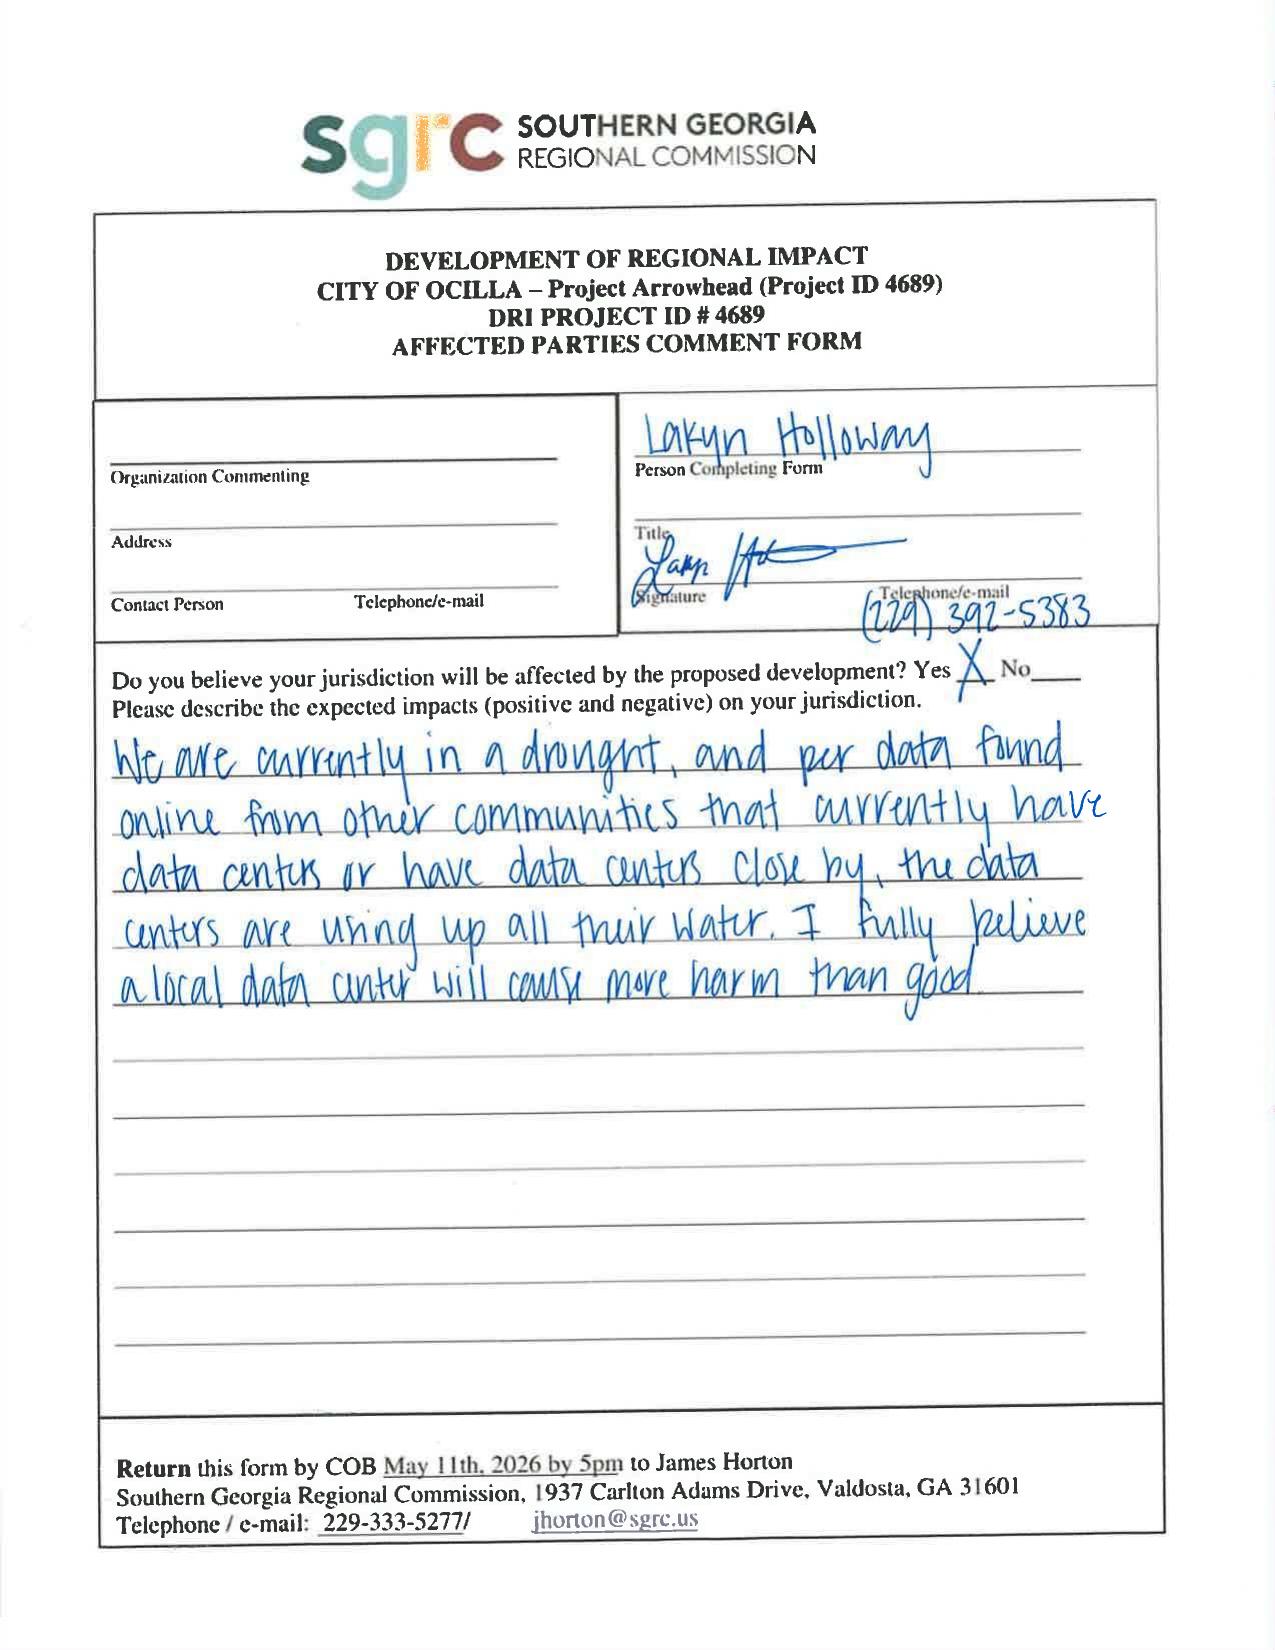 sgrc SOUTHERN GEORGIA
REGIONAL COMMISSION
DEVELOPMENT OF REGIONAL IMPACT
CITY OF OCILLA – Project Arrowhead (Project ID 4689)
DRI PROJECT ID # 4689
AFFECTED PARTIES COMMENT FORM
Organization Commenting
Address
Contact Person Telephone/e-mail
Lakyn Holloway
Person Completing Form
Title
Signature Telephone/e-mail
(229) 392-5383
Do you believe your jurisdiction will be affected by the proposed development? Yes X No
Please describe the expected impacts (positive and negative) on your jurisdiction.
We are currently in a drought, and per data found
online from other communities that currently have
data centers or have data centers close by, the data
centers are using up all their water. I fully believe
a local data center will cause more harm than good
Return this form by COB May 11th, 2026 by 5pm to James Horton
Southern Georgia Regional Commission, 1937 Carlton Adams Drive, Valdosta, GA 31601
Telephone / e-mail: 229-333-5277/ jhorton@sgrc.us